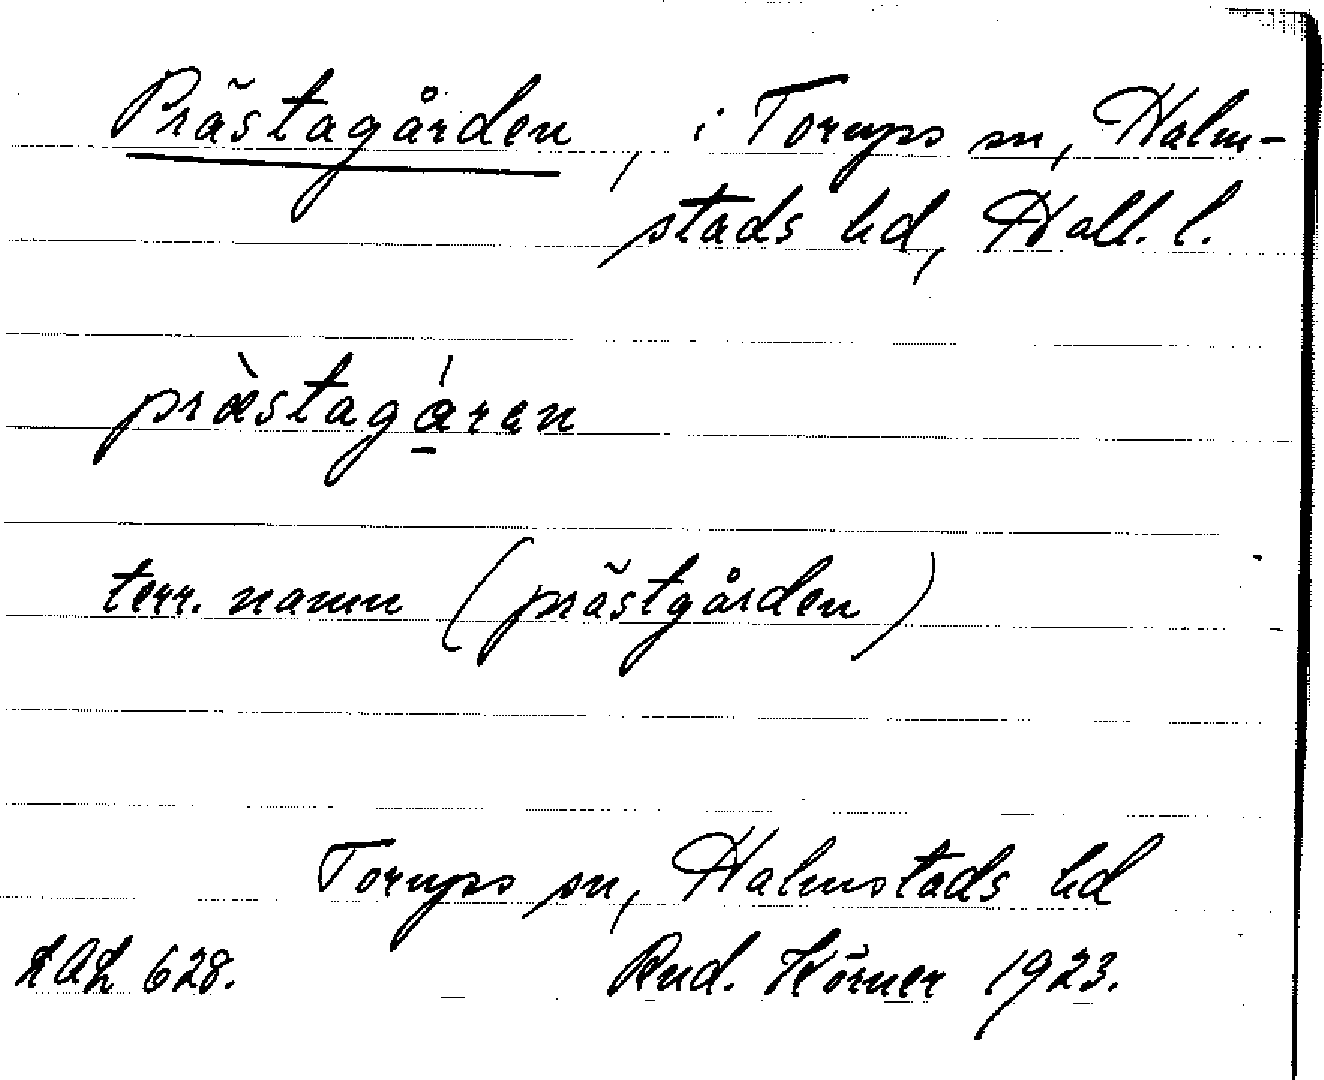 Prästagården, i Torups sn, Halm-
stads hd, Hall. l.
præ̀stagá̱ren
terr. namn (prästgården)
Torups sn, Halmstads hd
LAL 628. Rud. Körner 1923.